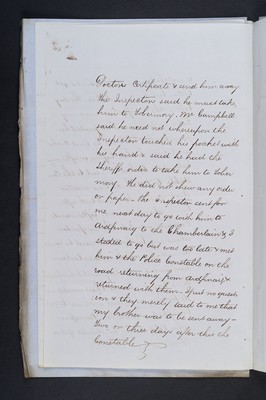 Doctors Certificate & send him away
The Inspector said he must take
him to Tobermory. Mr Campbell
said he need not whereupon the
Inspector touched his pocket with
his hand & said he had the
Sheriffs order to take him to Tober
mory. He did not shew any order
or paper. The Inspector sent for
me next day to go with him to
Ardfinaig to the Chamberlain's, I
started to go but was too late & met
him & the Police Constable on the
road returning from Ardfinaig &
returned with them. I put no quest
ion & they merely said to me that
my brother was to be sent away –
Two or three days after this the
Constable